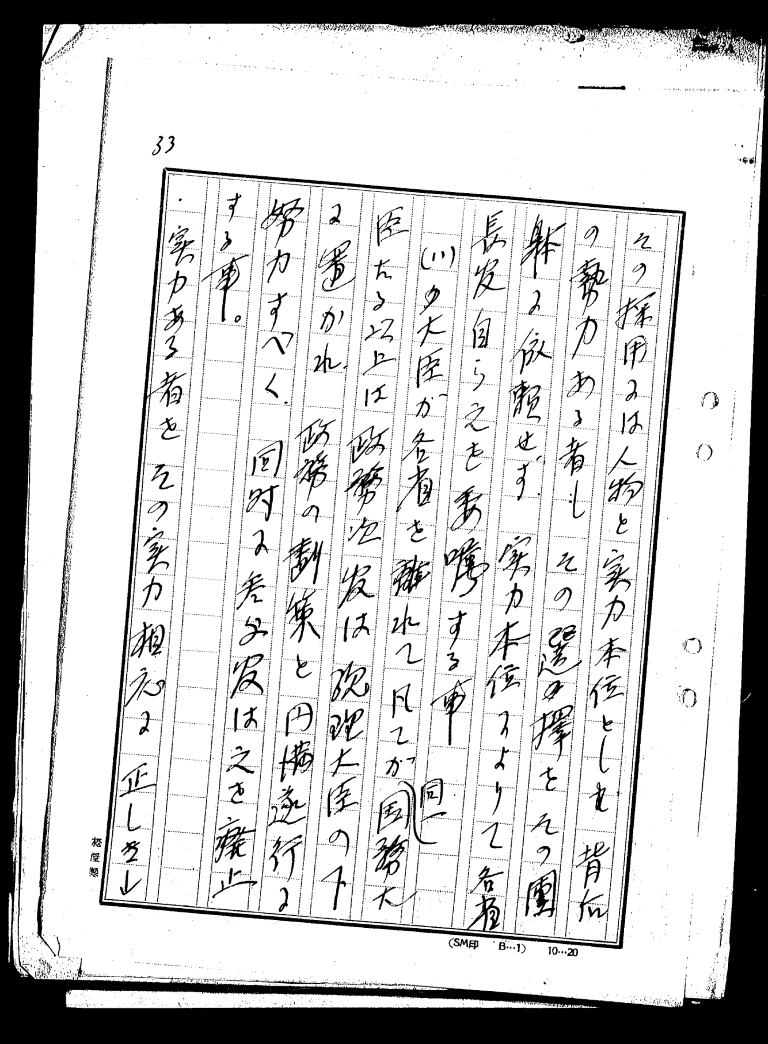 33
その採用には人物と実力本位としも 背后
の勢力ある者も その選擇をその團
躰に依頼せず 実力本位によりて各省
長官自らえを委嘱する事
(ハ)の大臣が各省を離れて凡てが同一国務大
臣たる以上は 政務次官は総理大臣の下
に置かれ 政務の劃策と円満遂行に
努力すべく. 同時に参与官はえを廃止
する事。
・実力ある者を その実力相応に 正しき
(SM印 B…1) 10…20